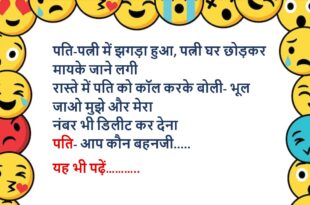 पति-पत्नी में झगड़ा हुआ, पत्नी घर छोड़कर
मायके जाने लगी
रास्ते में पति को कॉल करके बोली- भूल
जाओ मुझे और मेरा
नंबर भी डिलीट कर देना
पति- आप कौन बहनजी.....
यह भी पढ़ें...........